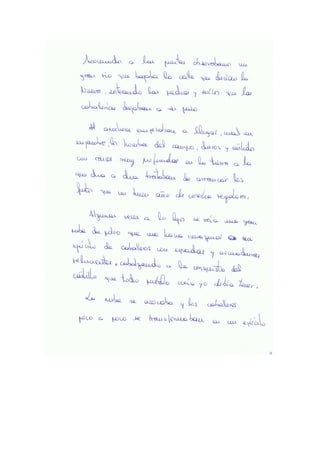 Asomado a las puertas observaban un
gran río que bajaba la calle que decían la
Nueva, sorteando las piedras y que las
caballerías dejaban a su paso.
Al anochecer empezaban a llegar, uno en
los hombres del campo, duros y
con raíces muy profundas en la tierra a la
que día a día trataban de arrancar los
frutos que un buen año de cosecha regalara.
Algunas veces a lo lejos se veía una gran
nube de polvo que me hacía un
ejército de caballeros con espadas y armaduras
relucientes, cabalgando a la conquista del
castillo que todo pueblo creía yo debía tener.
La nube se acercaba y los caballeros
poco a poco se transformaban en un ejército